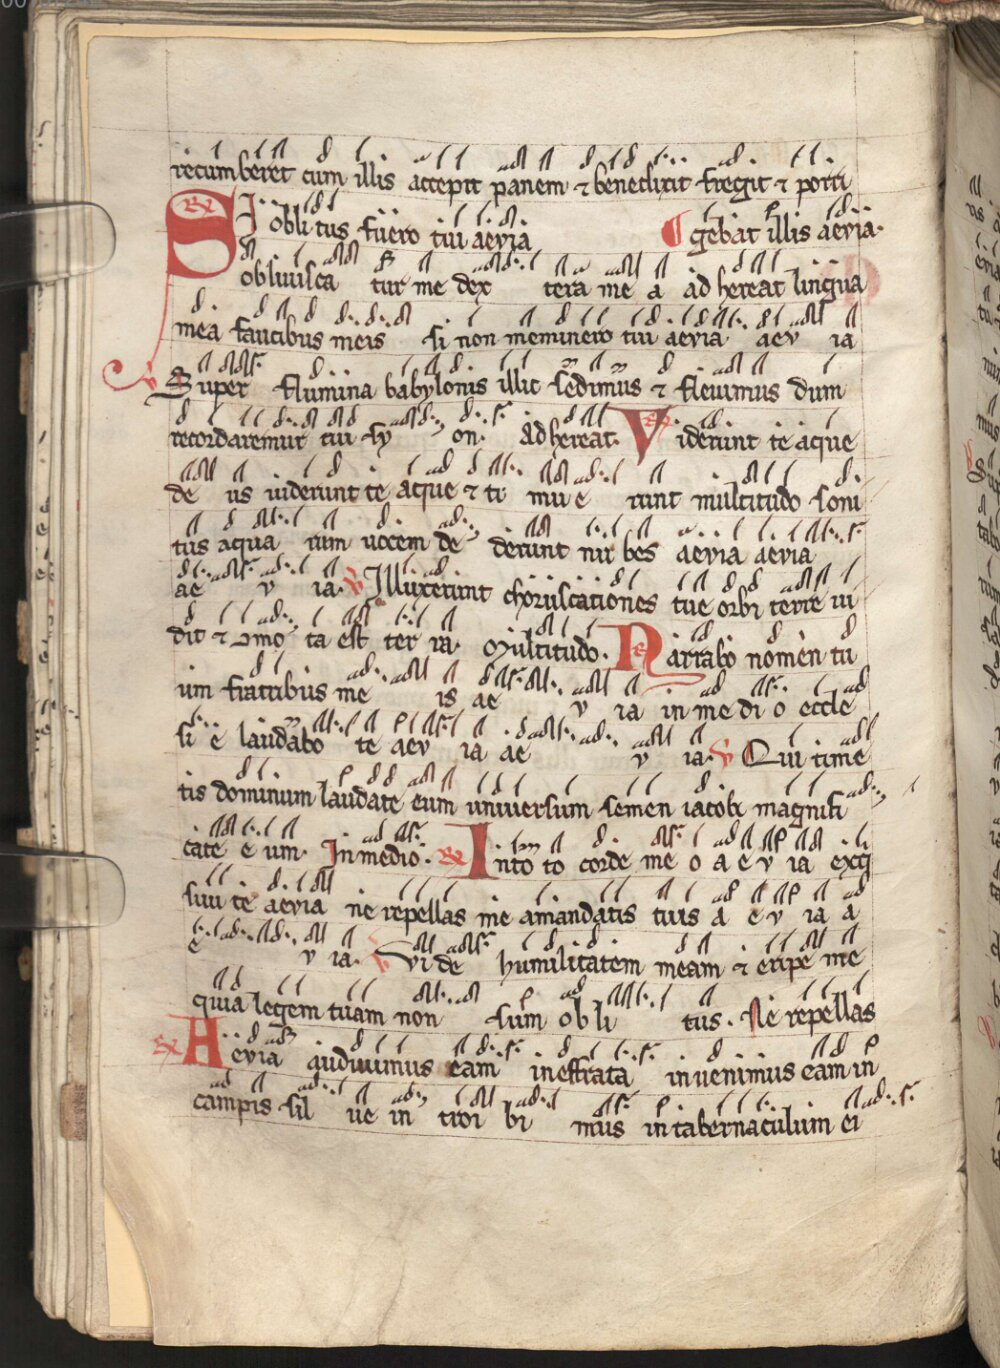 recumberet cum illis accepit panem ⁊ benedixit fregit ⁊ porri
SI oblitus fuero tui aevia ¶ gebat illis aevia.
obliviscatur me dextera me a adhereat lingua
mea faucibus meis si non meminero tui aevia aev ia
V Super flumina babylonis illic sedimus ⁊ flevimus dum
recordaremur tui sy on. Adhereat. Viderunt te aque
de us viderunt te aque ⁊ ti mu e runt multitudo soni
tus aqua rum vocem de derunt nu bes aevia aevia
ae v ia. V Illuxerunt choruscationes tue orbi terre vi
dit ⁊ ɔmo ta est ter ra. Multitudo. Narrabo nomen tu
um fratribus me is ae v ia in me di o eccle
si e laudabo te aev ia ae v ia. V Qui time
tis dominum laudate eum universum semen iacob magnifi
cate e um. In medio. R In to to corde me o a e v ia exq
sivi te aevia ne repellas me a mandatis tuis a e v ia a
e v ia. V Vi de humilitatem meam ⁊ eripe me
quia legem tuam non sum obli tus. Ne repellas
R Aevia audivimus eam in effrata invenimus eam in
campis sil ve in troi bi mus in tabernaculum ei